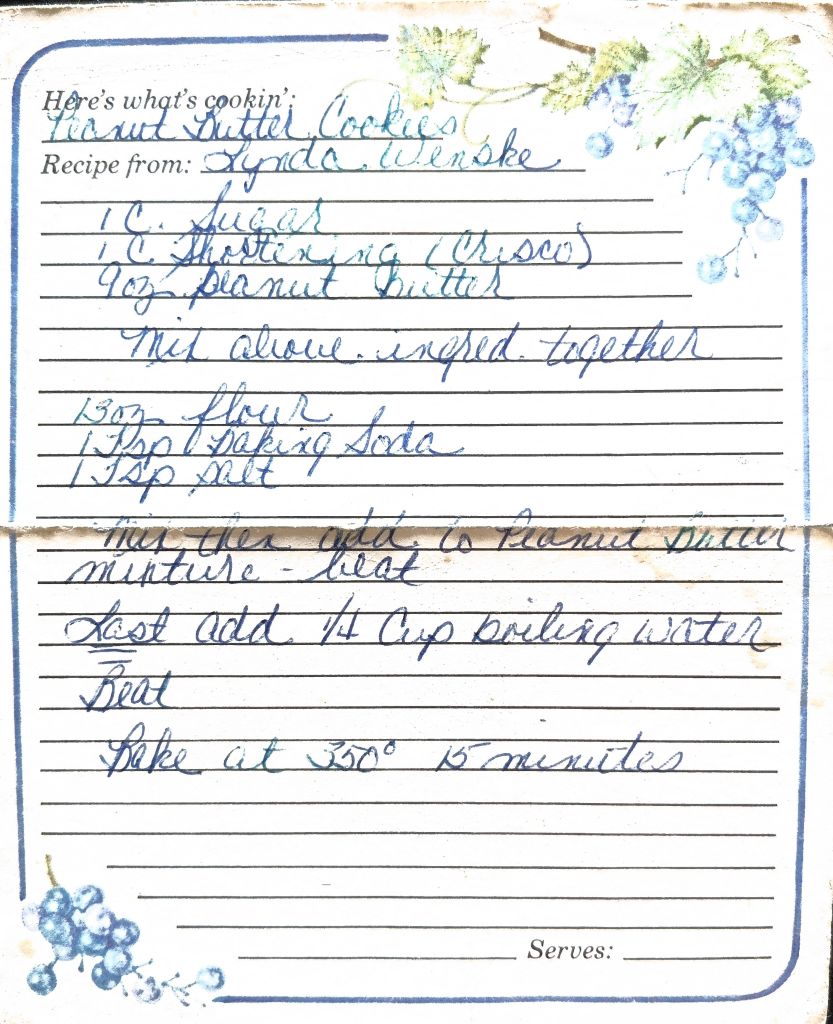 Here's what's cookin':
Peanut Butter Cookies
Recipe from: Lynda Wenske
1 C. Sugar
1 C Shortening (Crisco)
9oz peanut butter
Mix above ingred. together
13oz flour
1 Tsp baking Soda
1 Tsp salt
Mix then add to Peanut Butter
mixture - beat
Last add 1/4 Cup boiling water
Beat
Bake at 350° 15 minutes
Serves: